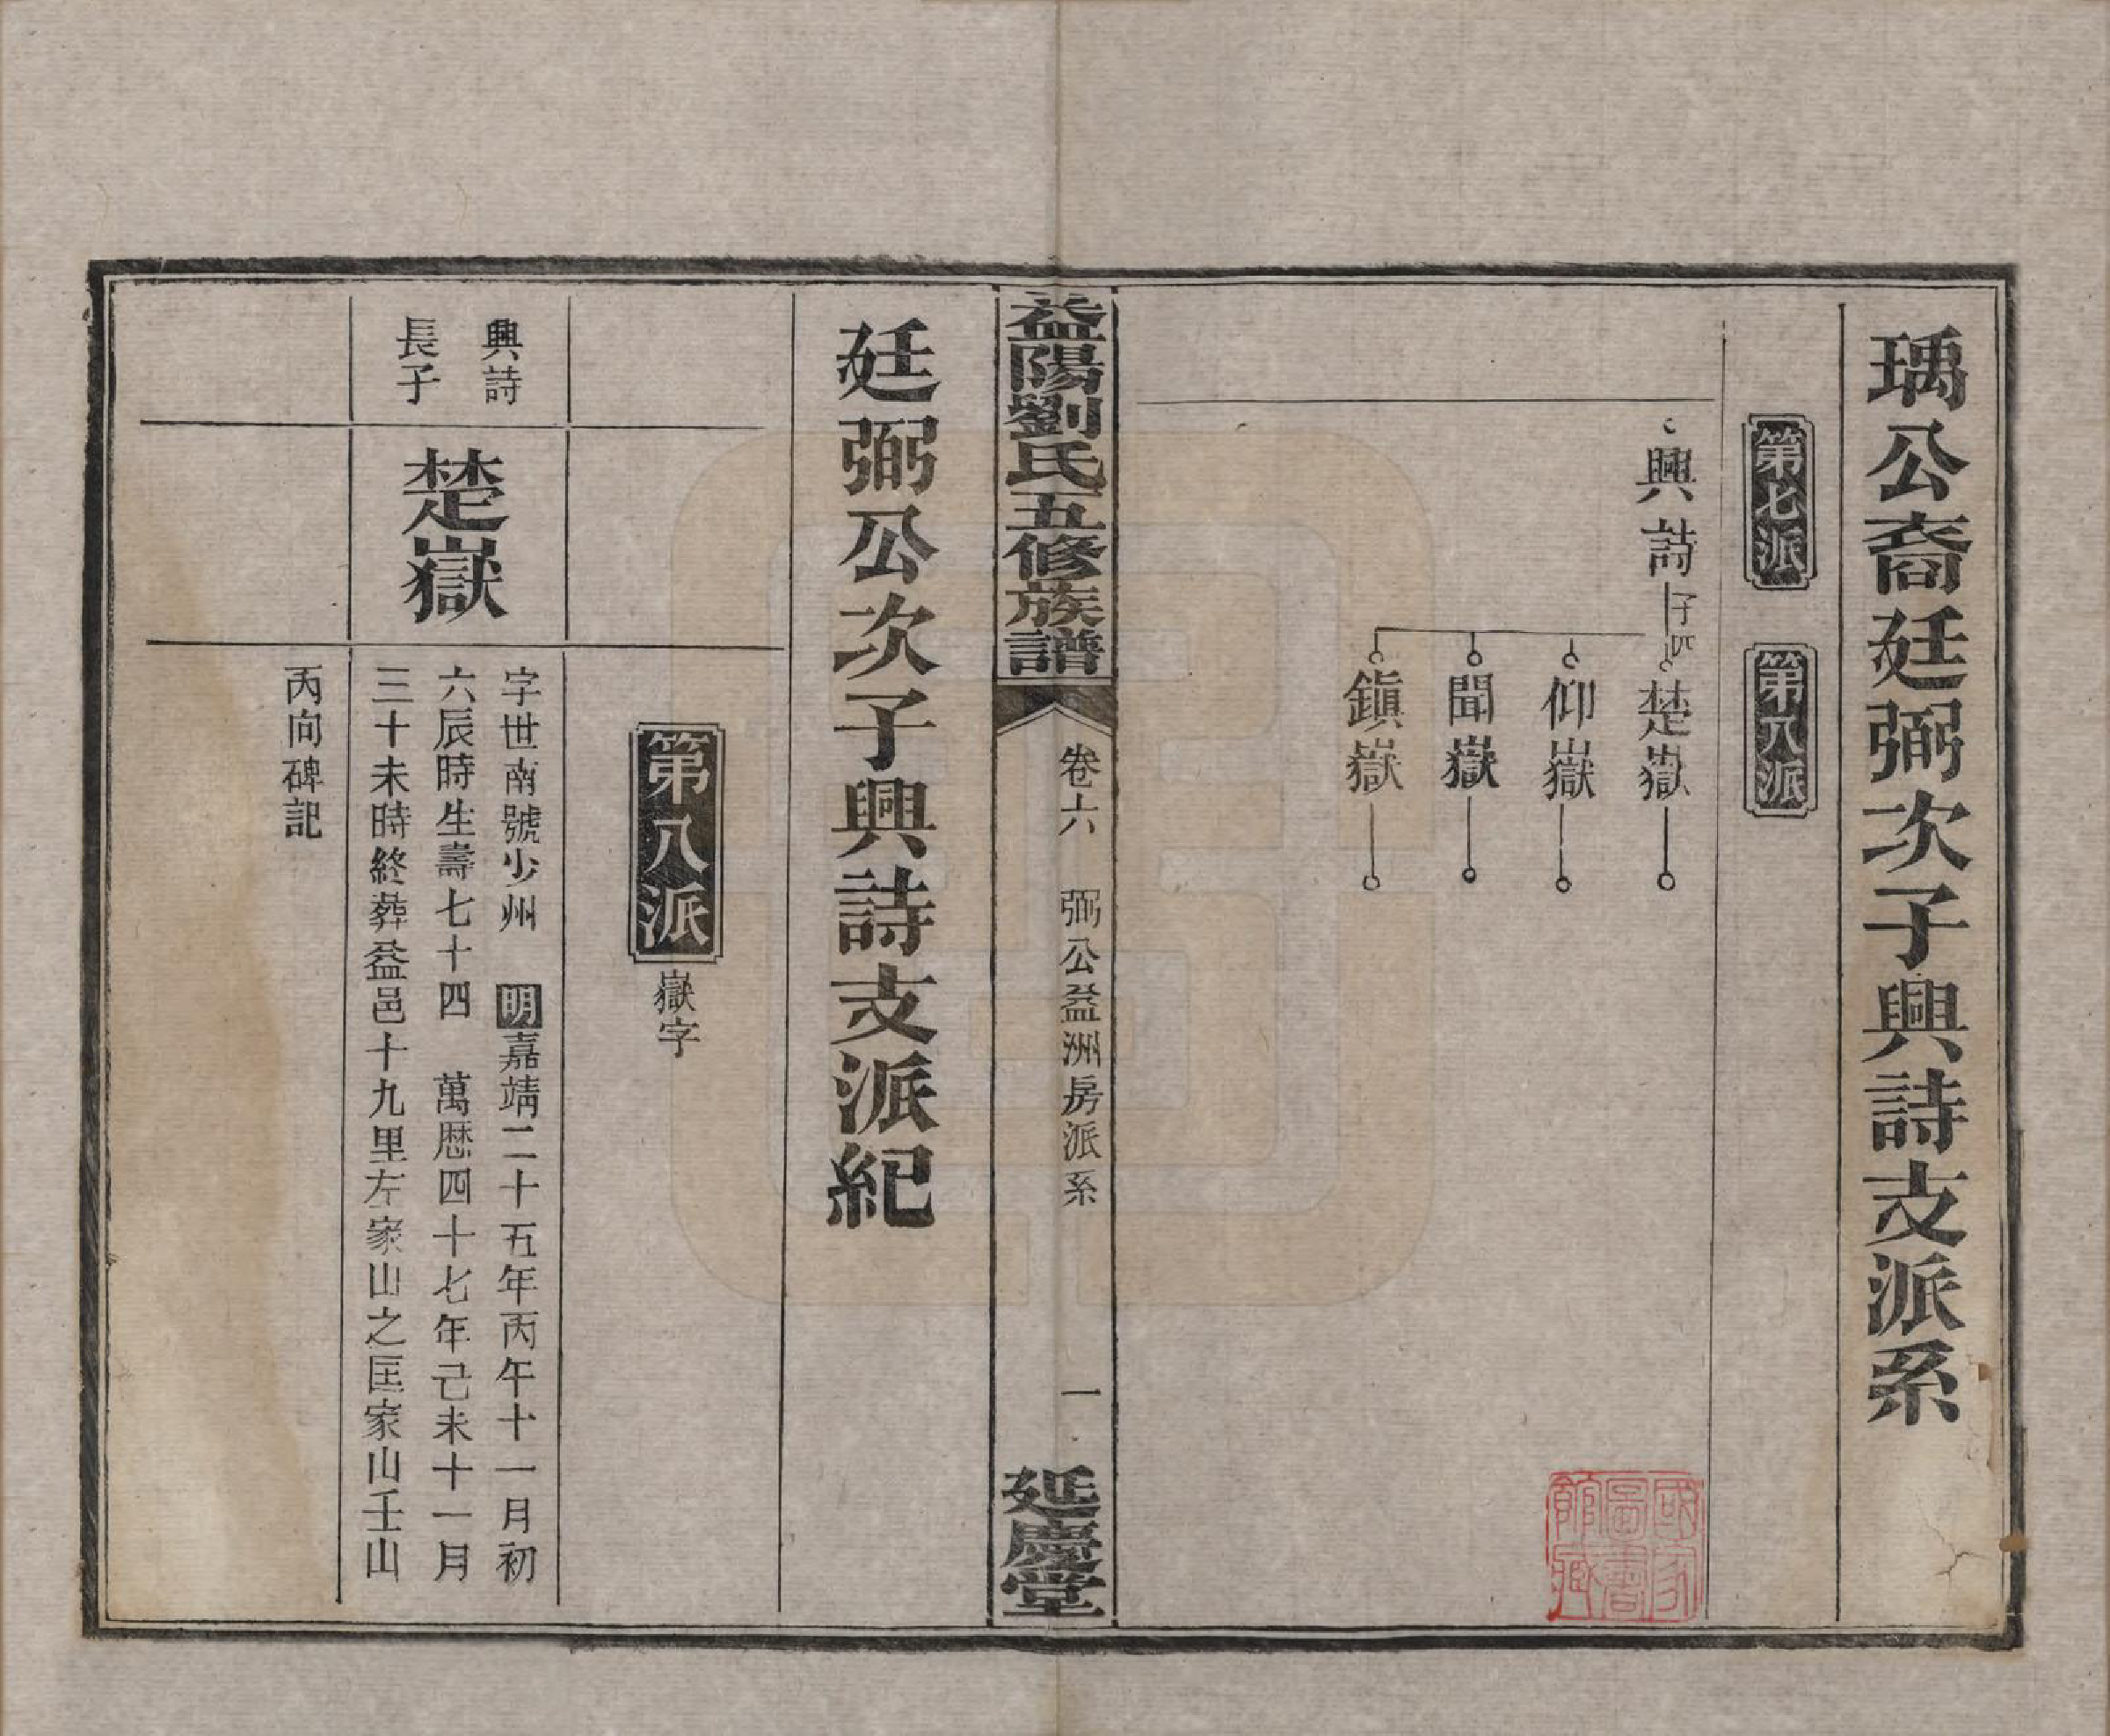 瑀公裔廷弼次子興詩支派系
第七派
第八派
興詩
子四
楚嶽
仰嶽
聞嶽
鎮嶽
國家
圖書
館藏
益陽劉氏五修族譜
卷六
弼公益洲房派系
一
延慶堂
廷弼公次子興詩支派紀
第八派
嶽字
興詩
長子
楚嶽
字世南號少州 明嘉靖二十五年丙午十一月初
六辰時生壽七十四 萬歷四十七年己未十一月
三十未時終葬益邑十九里左家山之匡家山壬山
丙向碑記